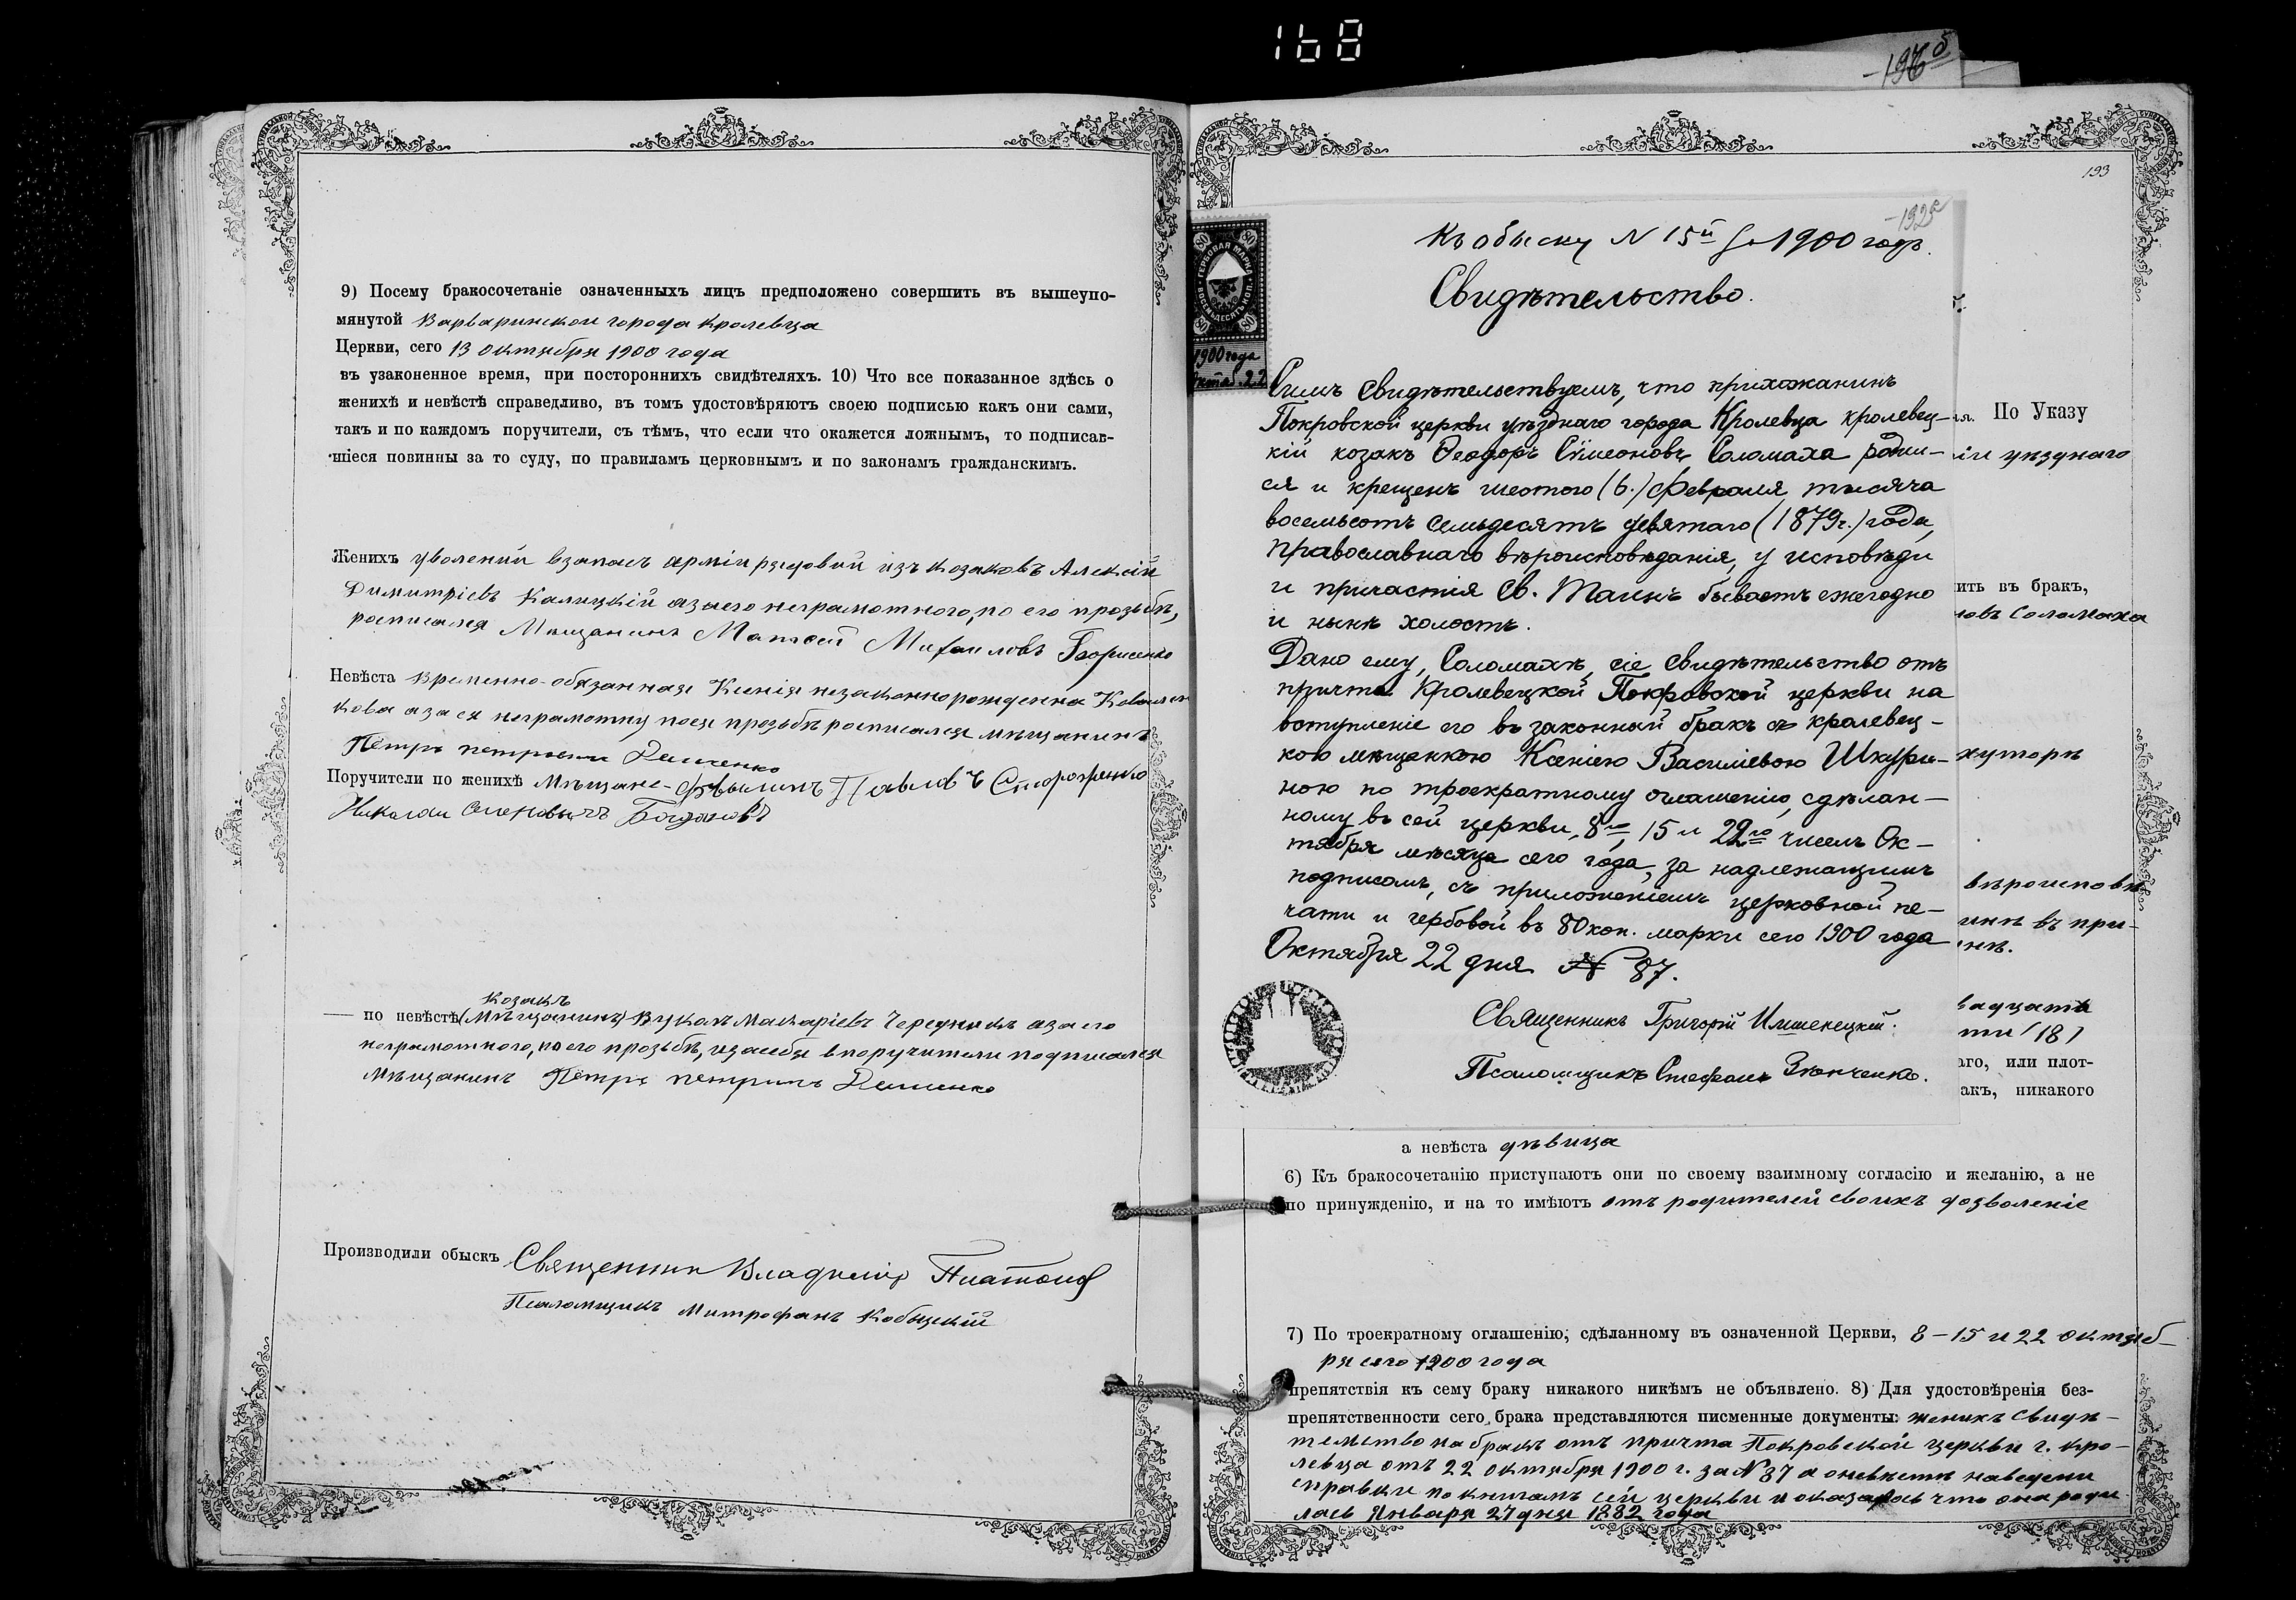 168
196б
9) Посему бракосочетаніе означенныхъ лицъ предположено совершить въ вышеупо-
мянутой Варваринской города Кролевца
Церкви, сего 13 октября 1900 года
въ узаконенное время, при постороннихъ свидѣтеляхъ. 10) Что все показанное здѣсь о
женихѣ и невѣстѣ справедливо, въ томъ удостовѣряютъ своею подписью какъ они сами,
такъ и по каждомъ поручители, съ тѣмъ, что если что окажется ложнымъ, то подписав-
шіеся повинны за то суду, по правиламъ церковнымъ и по законамъ гражданскимъ.
Женихъ уволений взапасъ арміи рядовой изъ козаковъ Алексій
Димитріевъ Калицкій азаего неграмотного, по его прозьбѣ,
росписался Мещанинъ Матвей Михаиловъ Борисенко
Невѣста временно-обязанная Ксенія незаконнорожденна Ковален
кова азаея неграмотну поея прозьбѣ росписался мѣщанинъ
Петръ петровичъ Деменко
Поручители по женихѣ Мѣщане Павловъ Стороженко
Николай Богдановъ
козакъ
— по невѣстѣ (Мѣщанинъ) Вуколъ Макаріевъ Чередникъ азаего
неграмотного, по его прозьбѣ, изасебя впоручители подписался
Мѣщанинъ Петръ петровичъ Деменко
Производили обыскъ Священникъ Владиміръ Платонов
Псаломщикъ Митрофанъ Кобыцкій
193
192а
Къ обыску N 15й за 1900 годъ.
Свидѣтельство.
80 80
ГЕРБОВАЯ МАРКА
ВОСЕМЬДЕСЯТЪ КОП.
80 80
1900 года
Октяб. 22
Симъ свидѣтельствуемъ, что прихожанинъ
Покровской церкви уѣзднаго города Кролевца кролевец-
кій козакъ Ѳеодоръ Сѵмеоновъ Соломаха роди-
ся и крещенъ шестого (6.) Февраля, тысяча
восемьсотъ семьдесятъ девятаго (1879г.) года,
православнаго вѣроисповѣданія, у исповѣди
и причастія Св. Таинъ бываетъ ежегодно
и нынѣ холостъ.
Дано ему, Соломахѣ, сіе свидѣтельство отъ
причта Кролевецкой Покровской церкви на
вступленіе его въ законный бракъ съ кролевец-
кою мѣщанкою Ксеніею Василіевою Шкури-
ною по троекратному оглашенію, сдѣлан-
ному въ сей церкви, 8го, 15 и 22го чиселъ Ок-
тября мѣсяца сего года, за надлежащимъ
подписомъ, съ приложеніемъ церковной пе-
чати и гербовой въ 80 коп. марки сего 1900 года
Октября 22 дня N 87.
Священникъ Григорій Имшенецкій.
Псаломщикъ Стефанъ Зѣнченко.
ія. По Указу
ій уѣзднаго
ить въ бракъ,
новъ Соломаха
хуторѣ
вѣроисповѣ
инѣ въ при-
инѣ.
вадцать
ти (18)
аго, или плот-
акъ, никакого
а невѣста дѣвица
6) Къ бракосочетанію приступаютъ они по своему взаимному согласію и желанію, а не
по принужденію, и на то имѣютъ отъ родителей своихъ дозволеніе
7) По троекратному оглашенію, сдѣланному въ означенной Церкви, 8 – 15 и 22 октяб-
ря сего 1900 года
препятствія къ сему браку никакого никѣмъ не объявлено. 8) Для удостовѣренія без-
препятственности сего брака представляются писменные документы: женихъ свидѣ-
тельство на бракъ отъ причта Покровской церкви г. Кро-
левца отъ 22 октября 1900 г. за N 87 а оневѣстѣ наведени
справки по книгамъ сей церкви и оказалось что она роди
лась Января 27 дня 1882 года